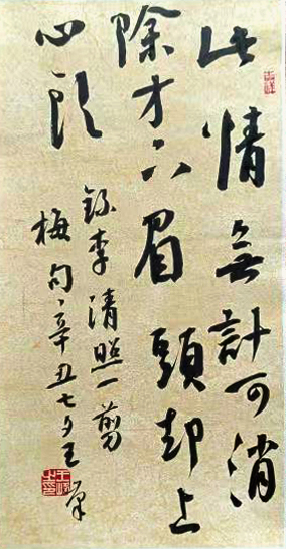 此情無計可消
除才下眉頭却上
心頭
錄李清照一剪
梅句辛丑七夕王